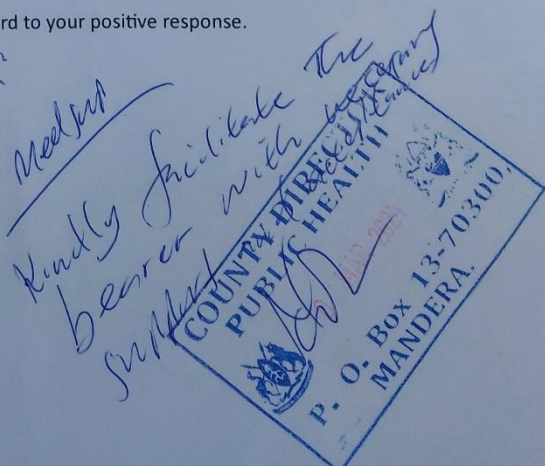 rd to your positive response.
Medsup
Kindly facilitate the
bearer with necessary
support
COUNTY DIRECTOR
PUBLIC HEALTH
MAR 2024
P. O. Box 13-70300,
MANDERA.